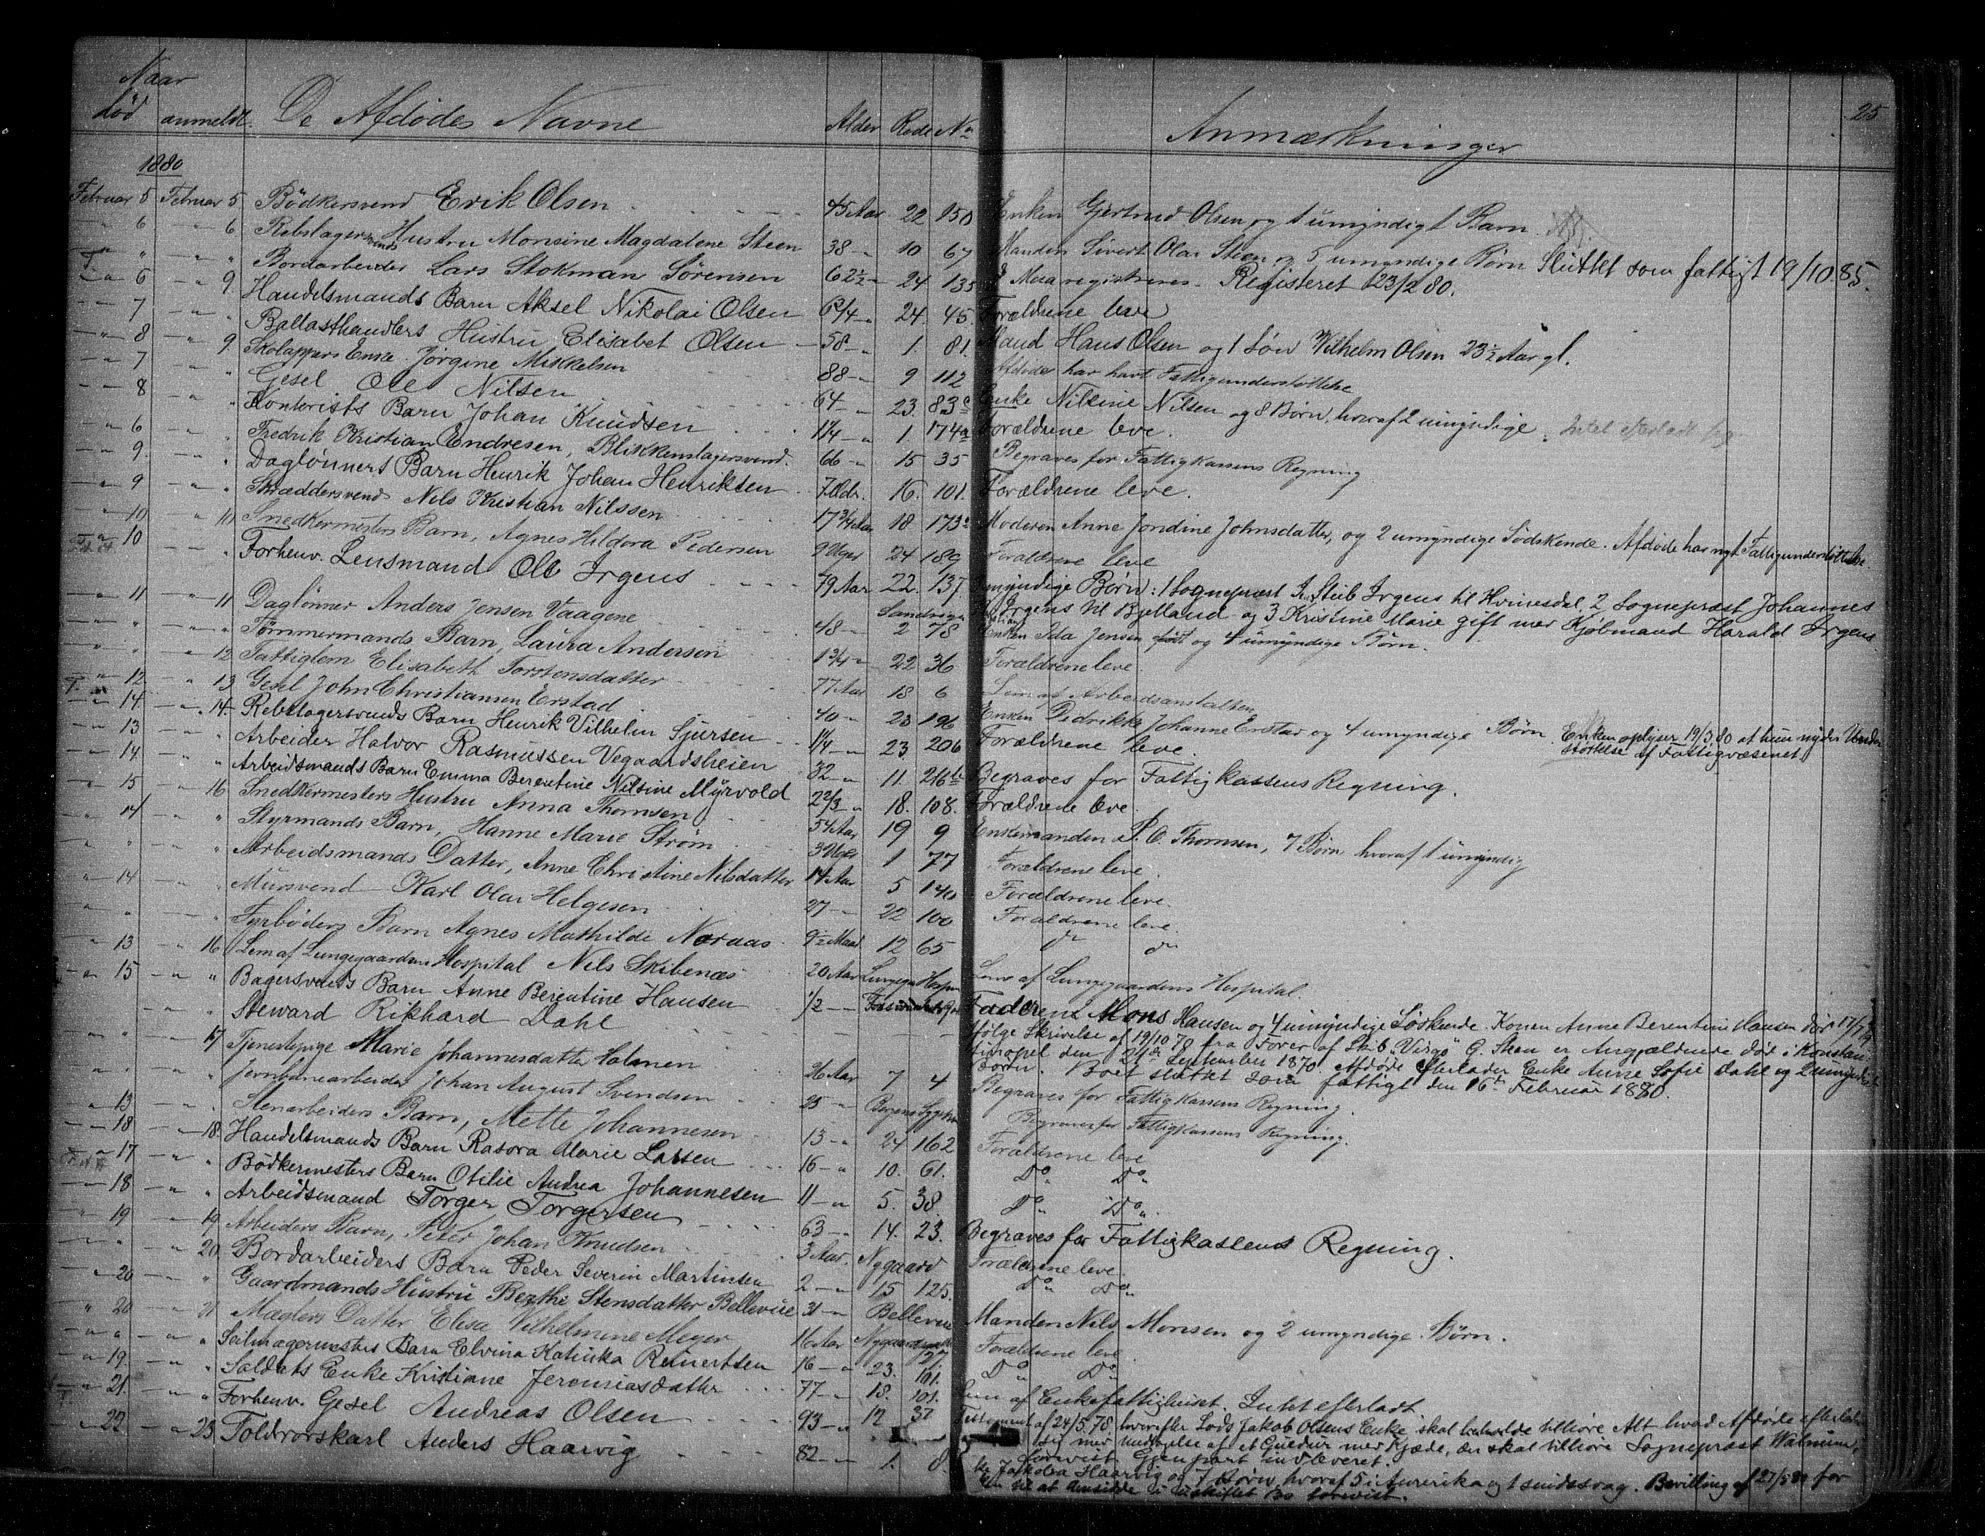 Naar
død anmeldt. De Afdødes Navne Alder Rode No Anmærkninger 25
1880
Februar 5 Februar 5 Bødkersvend Erik Olsen 45 Aar 22 150 Enken Gjertrud Olsen og 1 umyndigt Barn.
" 6 " 6 Rebslagersvends Hustru Monsine Magdalene Steen 38 " 10 67 Manden Sivert Olai Steen og 5 umyndige Børn Sluttet som fattigt 19/10 85.
" " " " Bordarbeider Lars Stokman Sørensen 62½ " 24 135 Registreret 23/2 80.
" 6 " 9 Handelsmands Barn Aksel Nikolai Olsen 24. 45. Forældrene leve
" 7 " " Ballasthandlers Hustru Elisabet Olsen 58 " 1. 81. Mand Hans Olsen og 1 Søn Vilhelm Olsen 23½ Aar gl.
" 8 " 9 Skolappers Enke Jørgine Mikkelsen 88 " 9 112 Afdøde har havt Fattigunderstøttelse
" 7 " " Gesel Ole Nilsen 64 " 23. 83 Enke Nilsine Nilsen og 8 Børn, hvoraf 2 umyndige.
" 8 " " Kontorists Barn Johan Knudsen 1¼ " 1. 174a Forældrene leve.
" 6 " " Fredrik Kristian Endresen, Blikkenslagersvend. 66 " 15 35 Begraves for Fattigkassens Regning
" 9. " " Daglønners Barn Henrik Johan Henriksen 16. 101. Forældrene leve.
" 9 " " Skræddersvend Nils Kristian Nilssen 17¾ Aar 18 173a Moderen Anne Jondine Johnsdatter, og 2 umyndige Sødskende. Afdøde har nydt Fattigunderstøttelse
" 10 " 10 Snedkermesters Barn, Agnes Hildora Pedersen 9 Uger 24 189 Forældrene leve
" 10 " " Forhenv. Lensmand Ole Irgens 79 Aar 22. 137 Umyndige Børn: 1 Sognepræst J. Stub Irgens til Hvinesdal, 2 Sognepræst Johannes
Irgens til Bjelland og 3 Kristine Marie gift med Kjøbmand Harald Irgens
" 11 " 11 Dagløner Anders Jensen Vaagene 48 " Sandvigen 2 78 Enken Ida Jensen født og 4 umyndige Børn.
" " " " Tømmermands Barn, Laura Andersen 1¾ " 22 36 Forældrene leve.
" " " 12 Fattiglem Elisabeth Torstensdatter 77 Aar 18 6 Lem af Arbeidsanstalten
" 12 " 13 Gesel John Christiansen Erstad 40 " 23 196 Enken Didrikke Johanne Erstad og 4 umyndige Børn. Enken oplyser 19/5 80 at hun nyder Under
støttelse af Fattigvæsenet
" 14. " 14. Rebslagersvends Barn Henrik Vilhelm Sjursen 1¼ " 23 206 Forældrene leve.
" 13 " " Arbeider Halvor Rasmussen Vegaardsheien 32 " 11. 216b Begraves for Fattigkassens Regning.
" 14 " " Arbeidsmands Barn Emma Berentine Nilsine Myrvold 2⅔ " 18. 108. Forældrene leve.
" 15 " 16 Snedkermesters Hustru Anna Thomsen 54 Aar 19 9 Enkemanden P. C. Thomsen, 7 Børn hvoraf 1 umyndig
" 14 " " Styrmands Barn, Hanne Marie Strøm 3 Uger 1 77 Forældrene leve.
" " " " Arbeidsmands Datter, Anne Christine Nilsdatter 14 Aar 5 140 Forældrene leve.
" 14 " " Mursvend Karl Olai Helgesen 27 " 22 100 Forældrene leve.
" " " " Fyrbøders Barn Agnes Mathilde Noraas 9½ Maad 12 65 do do
" 13 " 16 Lem af Lungegaardens Hospital Nils Skibenæs 20 Aar Lungeg. Hospit. Lem af Lungegaardens Hospital.
" 15 " " Bagersvends Barn Anne Berentine Hansen ½ " Faderen Mons Hansen og 4 umyndige Søskende. Konen Anne Berentine Hansen død 17/7 79
" " " Steward Rikhard Dahl Ifølge Skrivelse af 19/10 70 fra Fører af Skib "Virgo" G. Steen er Angjældende død i Konstan-
tinopel den 24de September 1870. Afdøde efterlader Enke Anne Sofie Dahl og 2 umyndige
Børn. Boet sluttet som fattigt den 16de Februar 1880.
" " " 17 Tjenestepige Marie Johannesdatter Holmen 26 Aar 7 4 Begraves for Fattigkassens Regning.
" " " " Jernbanearbeider Johan August Svendsen 25 " Bergens Sygehus Begraves for Fattigkassens Regning.
" 13 " " Stenarbeiders Barn, Mette Johannesen 13 " 24 162 Forældrene leve
" 18 " 18. Handelsmands Barn Rasora Marie Larsen 16 " 10. 61. Do Do
" 17 " " Bødkermesters Barn Otilie Andrea Johannesen 11 " 5. 38. Do Do
" 18 " " Arbeidsmand Torger Torgersen 63 " 14. 23. Begraves for Fattigkassens Regning.
" 19 " 19. Arbeiders Barn, Peter Johan Knudsen 3 Aar. Nygaard Forældrene leve.
" " " 20. Bordarbeiders Barn Peder Severin Martinsen 2 " 15 125. Do Do
" 20 " " Gaardmands Hustru Berthe Stensdatter Bellevue 31 " Bellevue Manden Nils Monsen og 2 umyndige Børn.
" 20 " 21 Mæglers Datter Elisa Vilhelmine Meyer 16 Aar 127 Forældrene leve
" " " " Salmagermesters Barn Elvina Katinka Reinertsen 16 " 23. 101. Do Do
" 19. " " Soldats Enke Kristiane Jeremiasdatter 77 " 18. 101. Lem af Enkefattighuset. Intet efterladt
" 21. " " Forhenv. Gesel Andreas Olsen 93 " 12 37 Testament af 24/5. 78, hvorefter Lods Jakob Olsens Enke skal beholde tilhøre Alt hvad Afdøde efterlader
sig med undtagelse af et Guldur med Kjæde, der skal tilhøre Sognepræst Walnum,
Gjenpart indleveret.
" 22 " 23 Toldrorskarl Anders Haarvig 82 " 1. 8. Jakobea Haarvig og 7 Børn, hvoraf 5 i Amerika og 1 sindssvag. Bevilling af 27/5 80 for
Enken til at hensidde i uskiftet Bo forevist.